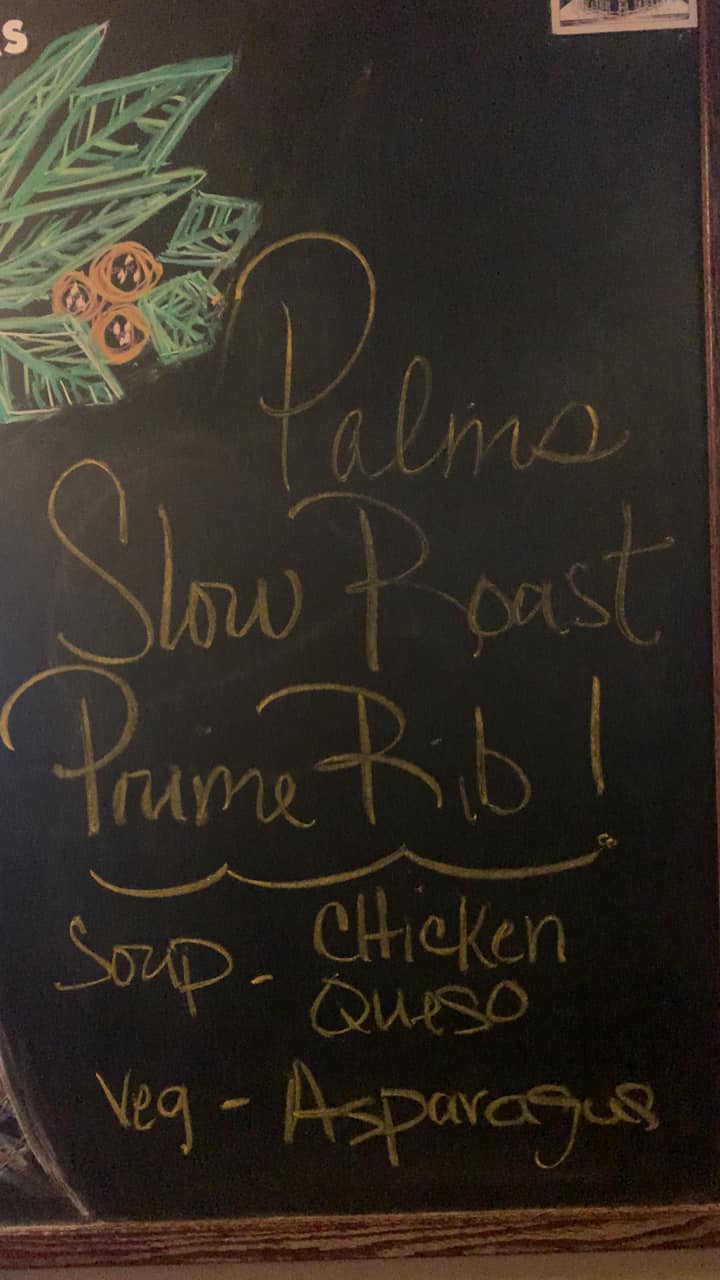 s
Palms
Slow Roast
Prime Rib!
Soup - CHicken
Queso
Veg - Asparagus